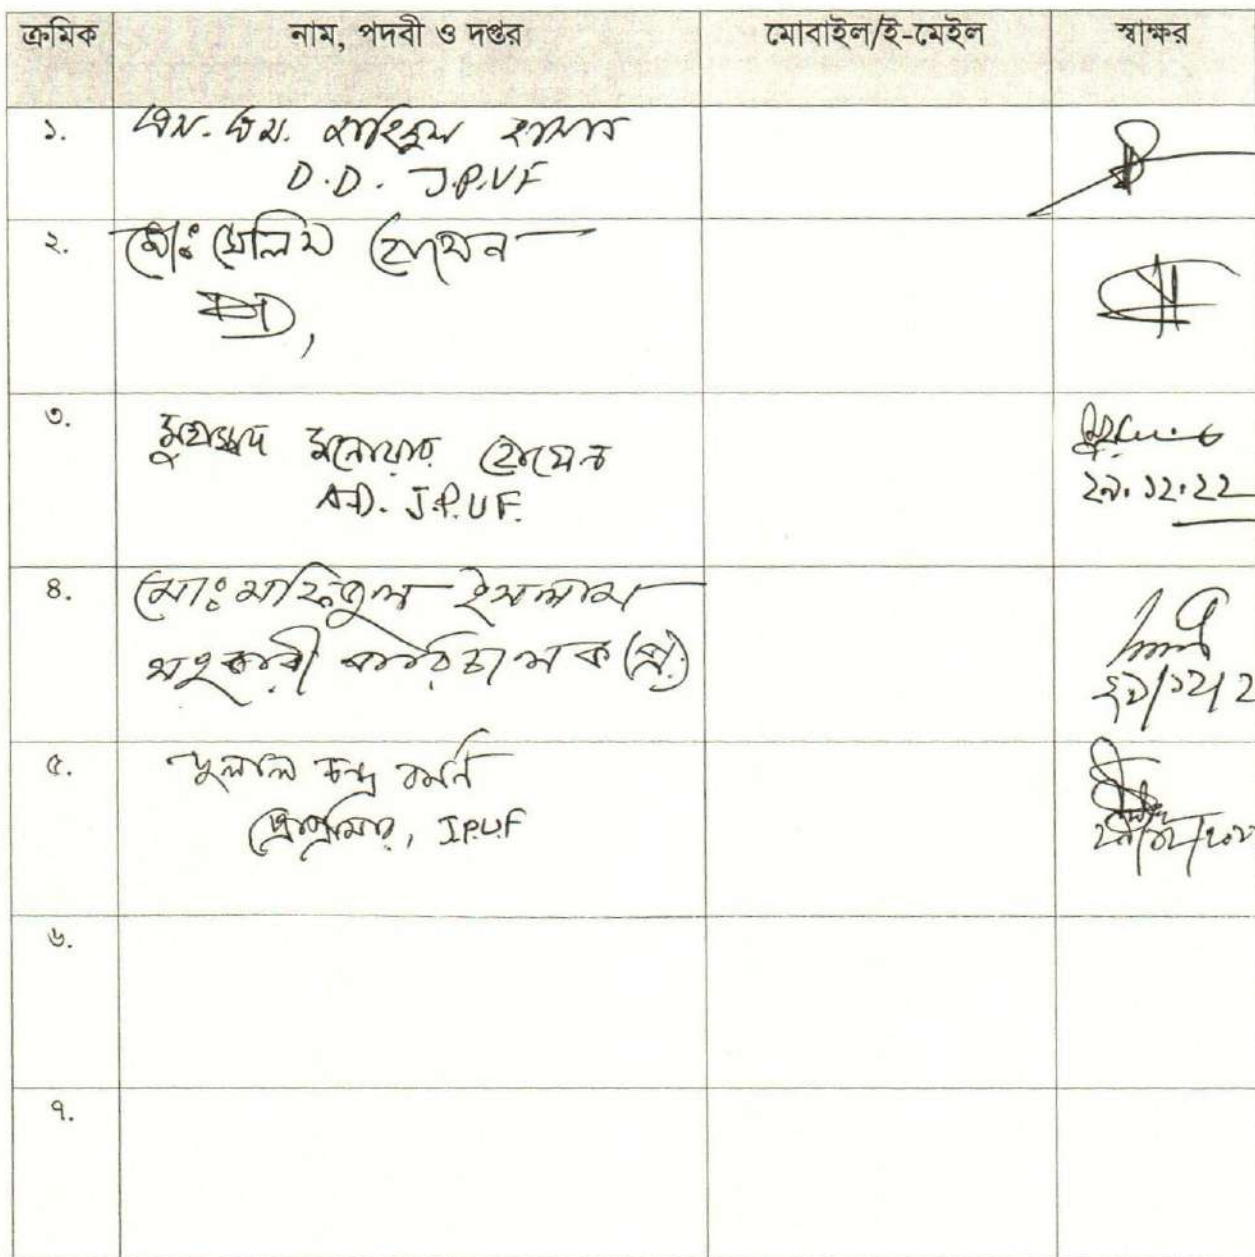 ক্রমিক নাম, পদবী ও দপ্তর মোবাইল/ই-মেইল স্বাক্ষর
১. এস. এম. হাসান
D.D. J.P.U.F
২. মোঃ সেলিম হোসেন
৩. মুহাম্মদ মনোয়ার হোসেন
A.D. J.P.U.F.
২৯.১২.২২
৪. মোঃ মফিজুল ইসলাম
সহকারী পরিচালক (প্র:)
২৯/১২/২
৫. দুলাল চন্দ্র বর্মন
প্রোগ্রামার, J.P.U.F
২৯/১২/২০২
৬.
৭.